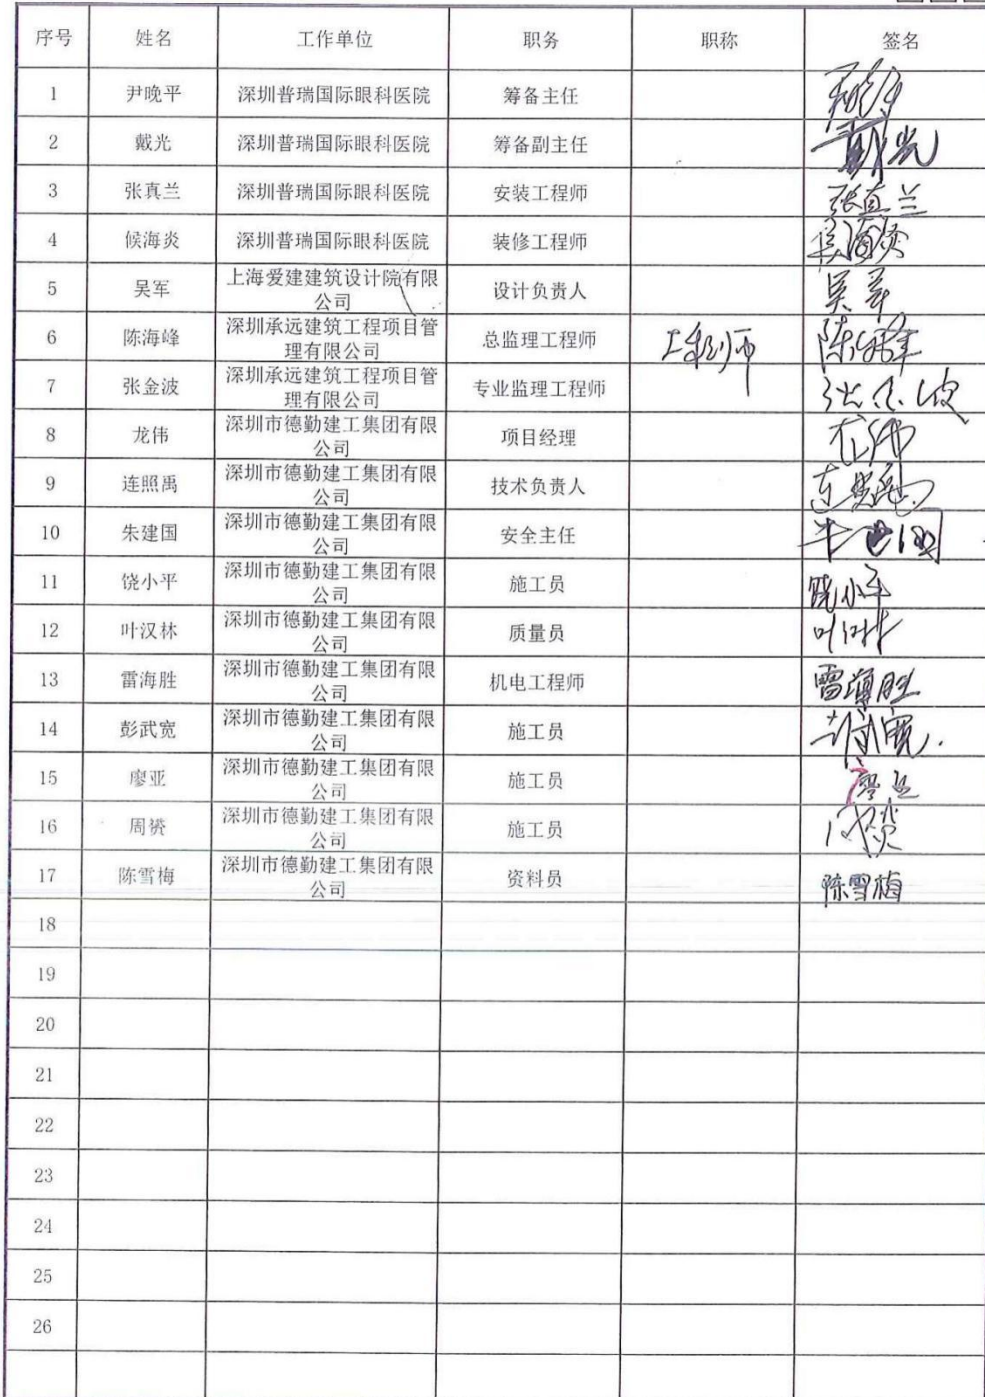 序号 姓名 工作单位 职务 职称 签名
1 尹晚平 深圳普瑞国际眼科医院 筹备主任
2 戴光 深圳普瑞国际眼科医院 筹备副主任 戴光
3 张真兰 深圳普瑞国际眼科医院 安装工程师 张直兰
4 候海炎 深圳普瑞国际眼科医院 装修工程师
5 吴军 上海爱建建筑设计院有限
公司 设计负责人 吴军
6 陈海峰 深圳承远建筑工程项目管
理有限公司 总监理工程师 工程师 陈海峰
7 张金波 深圳承远建筑工程项目管
理有限公司 专业监理工程师 张金波
8 龙伟 深圳市德勤建工集团有限
公司 项目经理 龙伟
9 连照禹 深圳市德勤建工集团有限
公司 技术负责人 连照禹
10 朱建国 深圳市德勤建工集团有限
公司 安全主任
11 饶小平 深圳市德勤建工集团有限
公司 施工员 饶小平
12 叶汉林 深圳市德勤建工集团有限
公司 质量员 叶汉林
13 雷海胜 深圳市德勤建工集团有限
公司 机电工程师 雷海胜
14 彭武宽 深圳市德勤建工集团有限
公司 施工员
15 廖亚 深圳市德勤建工集团有限
公司 施工员 廖亚
16 周赟 深圳市德勤建工集团有限
公司 施工员
17 陈雪梅 深圳市德勤建工集团有限
公司 资料员 陈雪梅
18
19
20
21
22
23
24
25
26